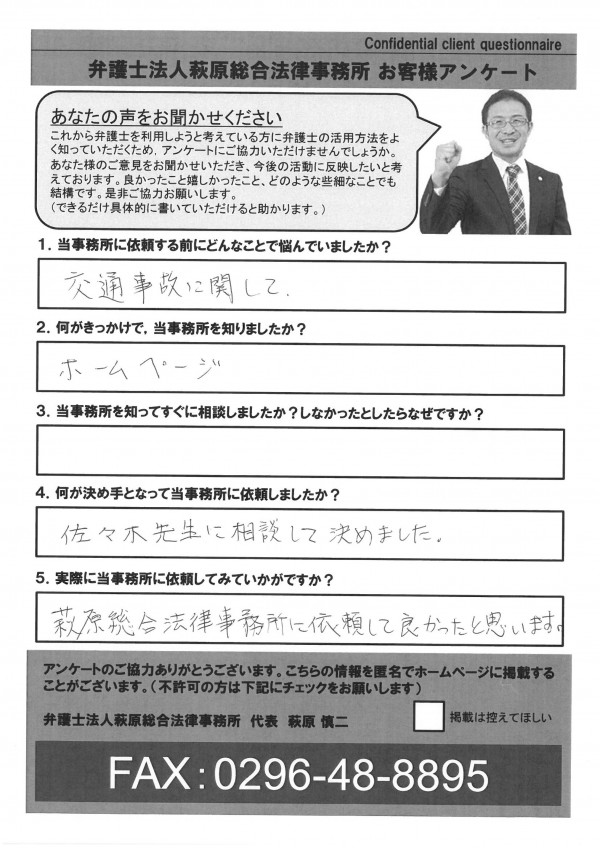 Confidential client questionnaire
弁護士法人萩原総合法律事務所 お客様アンケート
あなたの声をお聞かせください
これから弁護士を利用しようと考えている方に弁護士の活用方法をよ
く知っていただくため，アンケートにご協力いただけませんでしょうか。
あなた様のご意見をお聞かせいただき、今後の活動に反映したいと考
えております。良かったこと嬉しかったこと、どのような些細なことでも
結構です。是非ご協力お願いします。
（できるだけ具体的に書いていただけると助かります。）
1．当事務所に依頼する前にどんなことで悩んでいましたか？
交通事故に関して．
2．何がきっかけで，当事務所を知りましたか？
ホームページ
3．当事務所を知ってすぐに相談しましたか？しなかったとしたらなぜですか？
4．何が決め手となって当事務所に依頼しましたか？
佐々木先生に相談して決めました。
5．実際に当事務所に依頼してみていかがですか？
萩原総合法律事務所に依頼して良かったと思います。
アンケートのご協力ありがとうございます。こちらの情報を匿名でホームページに掲載する
ことがございます。（不許可の方は下記にチェックをお願いします）
弁護士法人萩原総合法律事務所 代表 萩原 慎二
掲載は控えてほしい
FAX：0296-48-8895